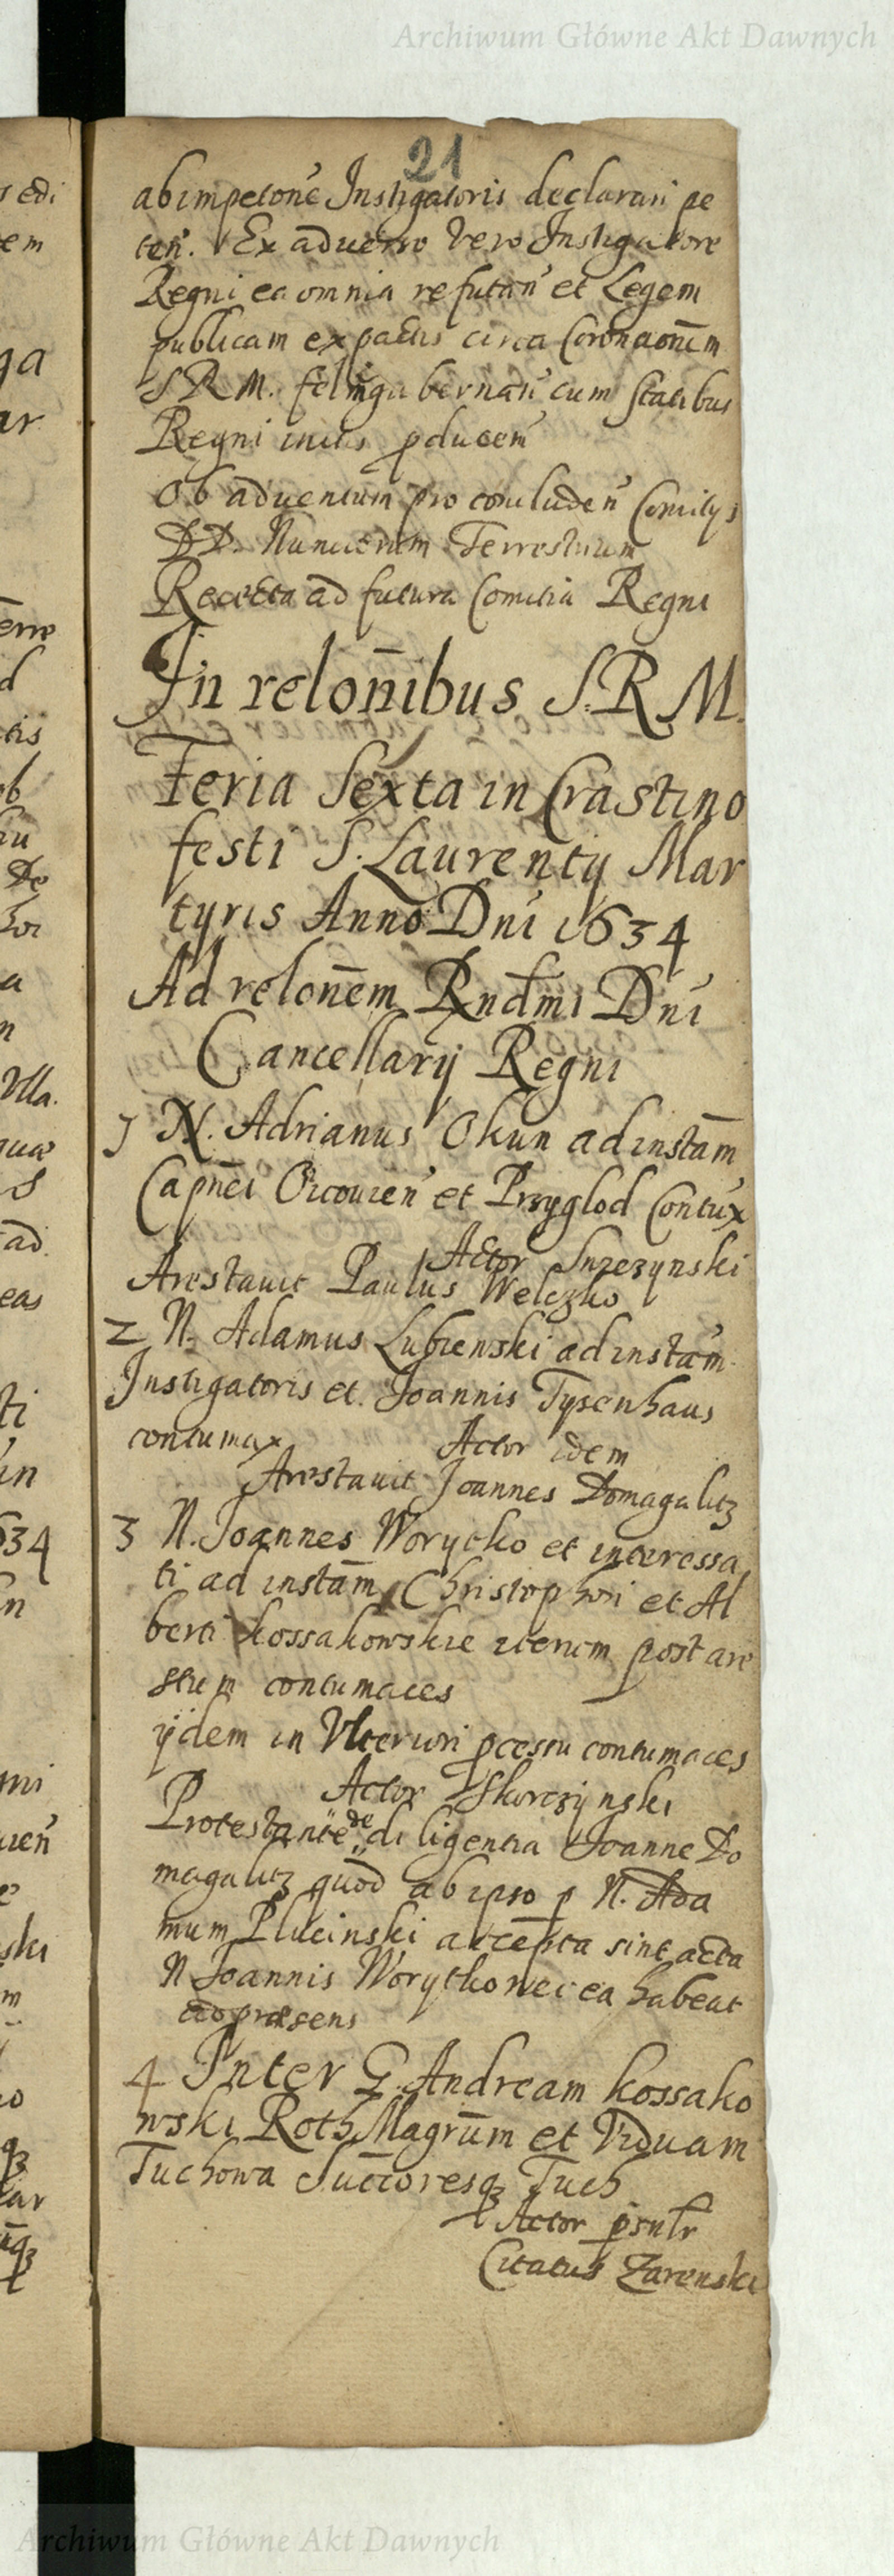 Archiwum Główne Akt Dawnych
21
ab impetone Instigatoris declarari pe
ten. Ex aduerso vero Instigatore
Regni ea omnia refutan et Legem
publicam ex pactis circa Coronaonem
S R M. felr gubernan cum statibus
Regni initis pducem
Ob aduentum pro concluden Comitys
DD. Nunciorum Terrestrium
Recepta ad futura Comitia Regni
In relonibus S. R M.
Feria Sexta in Crastino
festi S. Laurentij Mar
tyris Anno Dni 1634
Ad relonem Rndmi Dni
Cancellarij Regni
1 N. Adrianus Okun ad instam
Capnei Oicouien et Przyglod Contux
Actor Snzezynski
Arestauit Paulus Welczko
2 N. Adamus Lubienski ad instam
Instigatoris et Joannis Tysenhaus
contumax Actor idem
Arestauit Joannes Domagalitz
3 N. Joannes Worytko et interessa
ti ad instam Christophori et Al
berti Kossakowskie iterum post are
stum contumaces
ijdem in Vlteriori pcessu contumaces
Actor Skorczynski
Protestante de diligentia Joanne Do
magalitz quod ab ipso p N. Ada
mum Plucinski accepta sint acta
N Joannis Worytko nec ea habeat
ad præsens
4 Inter G. Andream Kossako
wski Roth Magrum et Viduam
Tuchowa Succoresq Tuch
Actor psnlr
Citatus Zarenski
Archiwum Główne Akt Dawnych